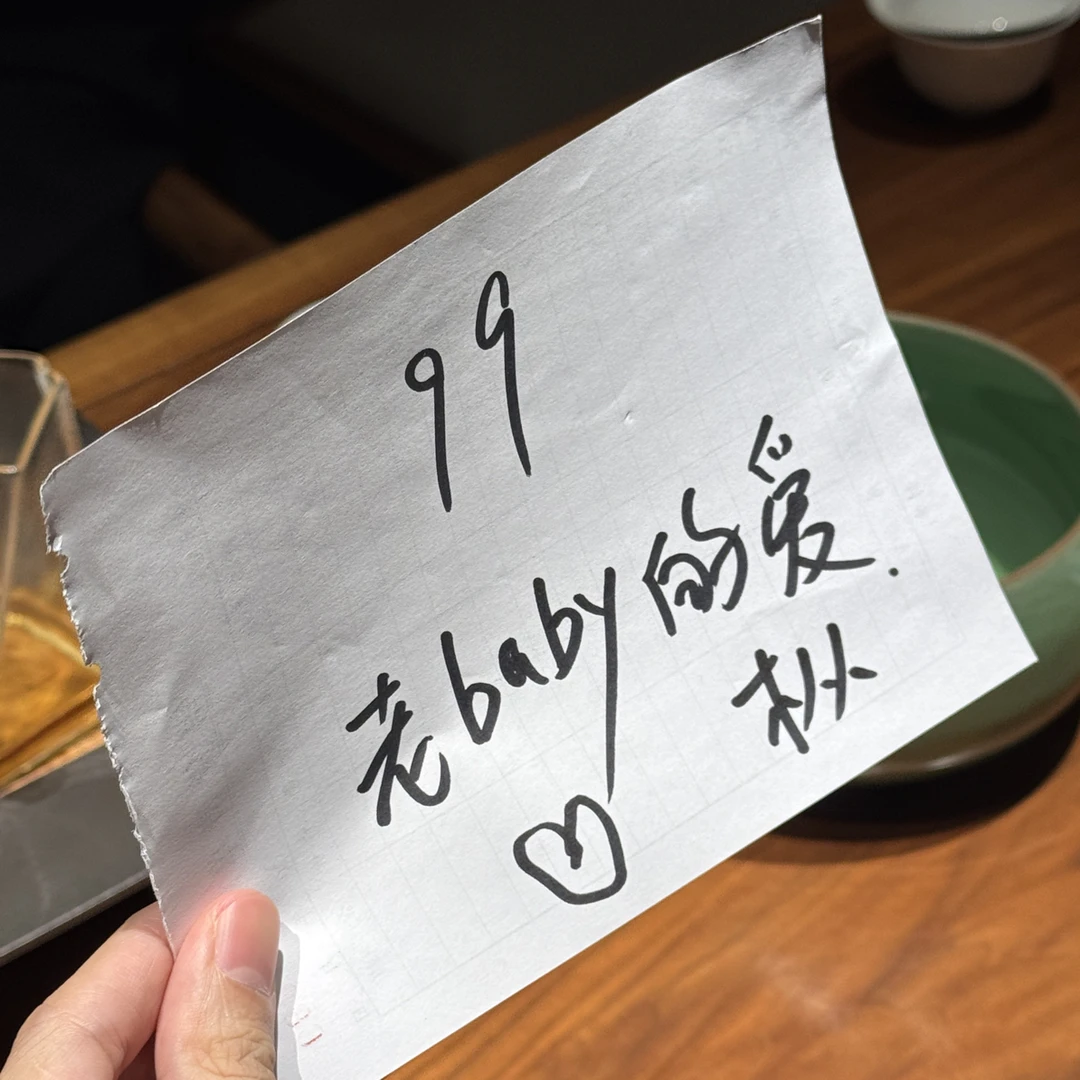 99
老baby的爱.